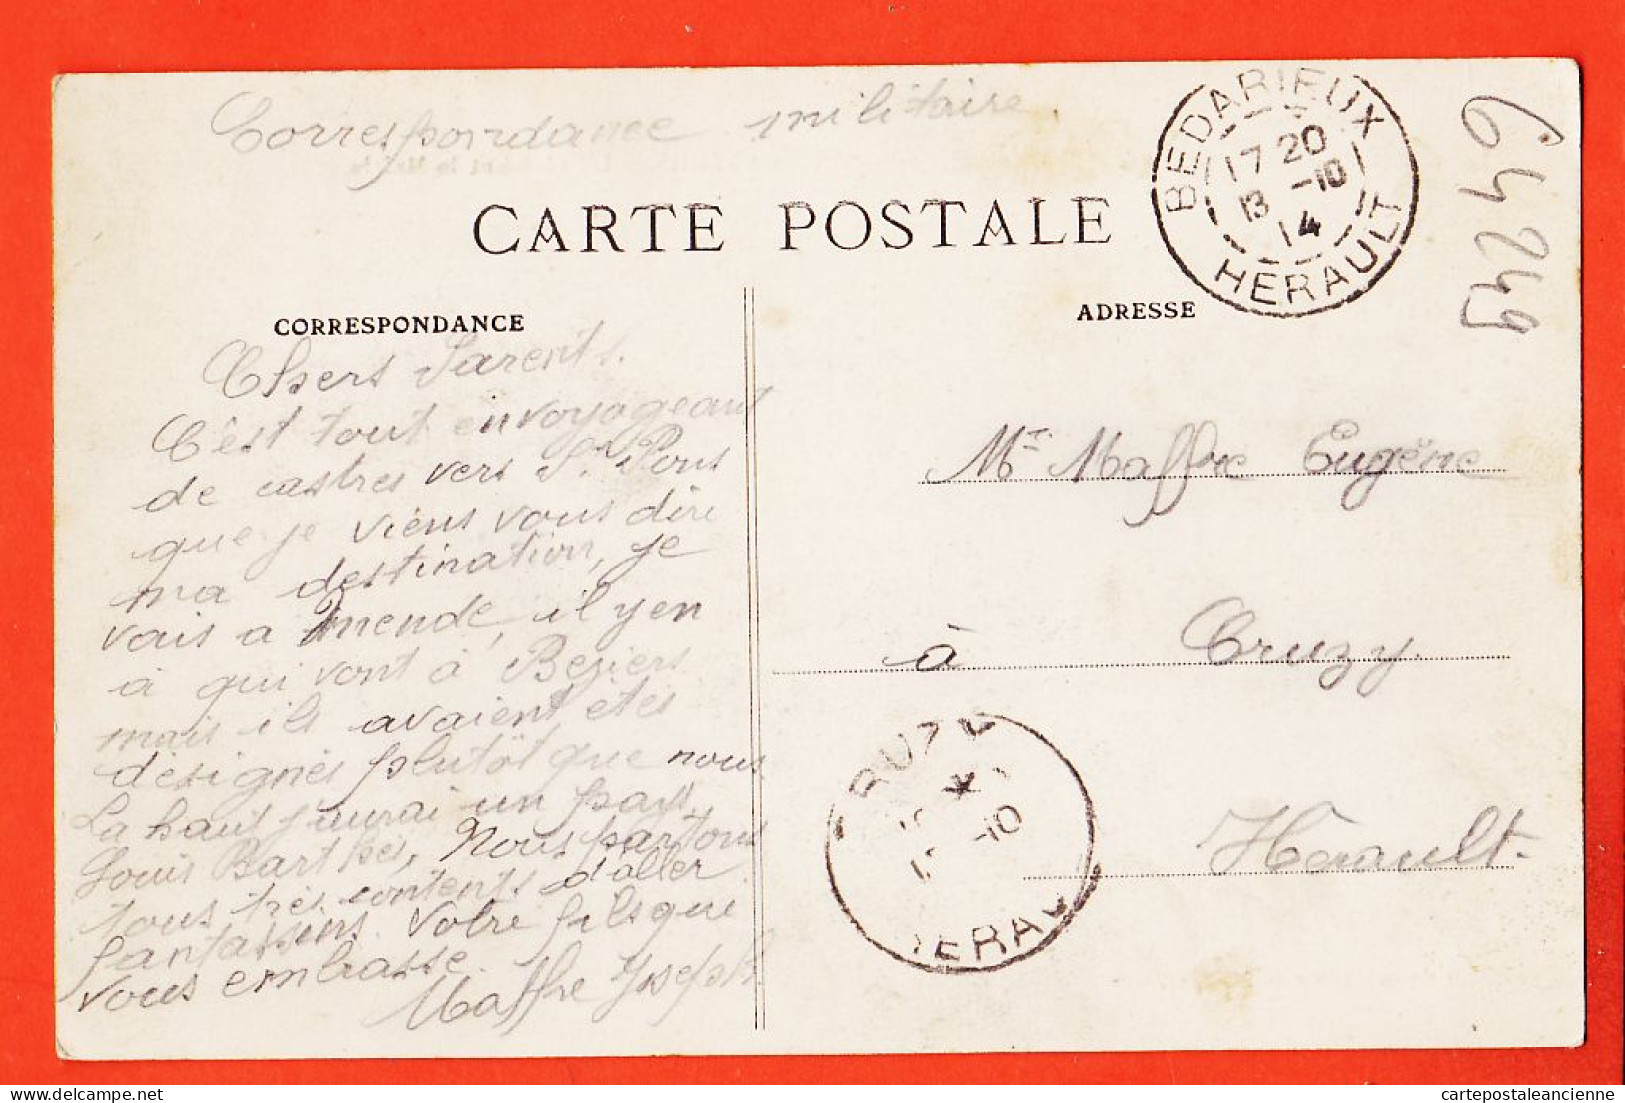 Correspondance militaire.
CARTE POSTALE
BEDARIEUX
17 20
13 -10
14
HERAULT
64249
CORRESPONDANCE
ADRESSE
Chers Parents.
C'est tout en voyageant
de castres vers St Pons
que je viens vous dire
ma destination, je
vais a mende, il y en
à qui vont à Beziers
mais ils avaient etes
désignés plutôt que nous
La haut j'aurai un pays
Louis Barthes, Nous partons
tous très contents d'aller
fantassins. Votre fils que
vous embrasse.
Maffre Joseph.
Mr Maffre Eugène
à Cruzy.
Hérault.
RUZY
-10
HERAU
cartepostaleancienne.com